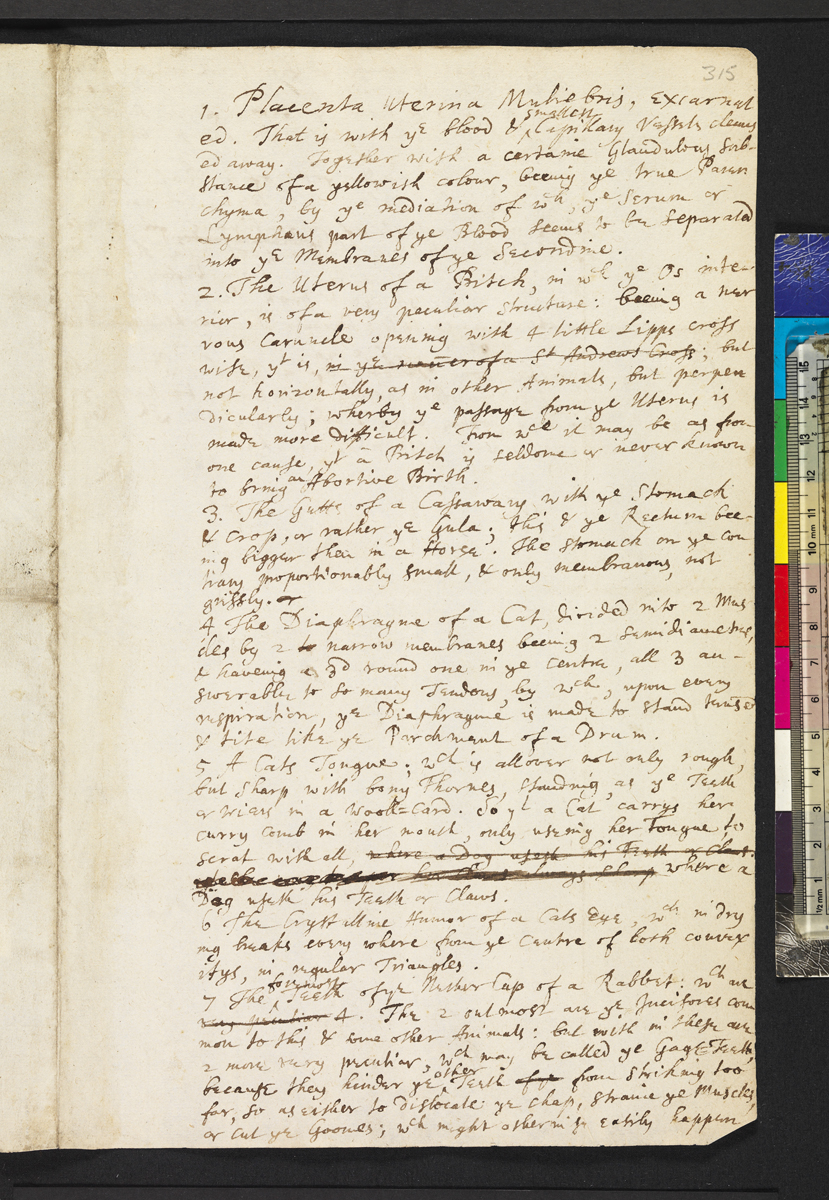 315
1. Placenta Uterina Muliebris, Excarnat
ed. That is with ye blood & smallest Capillary Vessels cleans
ed away. Together with a certaine Glandulous Sub-
stance of a yellowish colour, beeing ye true Paren
chyma, by ye mediation of wch, ye Serum or
Lymphaus part of ye Blood seems to be separated
into ye Membranes of ye Secondine.
2. The Uterus of a Bitch, in wch ye Os inte-
rior, is of a very peculiar structure: beeing a ner
vous Caruncle opening with 4 little Lipps cross
wise, yt is, in ye maner of a St Andrews Cross; but
not horizontally, as in other Animals, but perpen
dicularly; wherby ye passage from ye Uterus is
made more difficult. From wch it may be as from
one cause, yt a Bitch is seldome or never known
to bring an Abortive Birth.
3. The Gutts of a Cassawary with ye Stomach
& Crop, or rather ye Gula; this & ye Rectum bee-
ing bigger then in a Horse. The Stomach on ye con
trary proportionably small, & only membranous, not
grissly.
4 The Diaphragme of a Cat, divided into 2 Mus
cles by 2 narrow membranes beeing 2 Semidiameters,
& haveing a 3d round one in ye Centre, all 3 an-
swerable to so many Tendons, by wch, upon every
respiration, ye Diaphragme is made to stand tensed
& tite like ye Parchment of a Drum.
5 A Cats Tongue; wch is all over not only rough,
but sharp with bony Thornes, standing as ye Teeth
or Wiers in a Wooll=card. So yt a Cat carrys her
curry comb in her mouth, only useing her Tongue to
scrat with all, where a Dog useth his Teeth or Claws.
her Claws always sharp where a
Dog useth his Teeth or Claws.
6 The Crystalline Humor of a Cats Eye, wch in dry
ing breaks every where from ye Centre of both convex
itys, in regular Triangles.
7 The foremost Teeth of ye Nether Cap of a Rabbet: wch are
very peculiar 4. The 2 outmost are ye Incisores com
mon to this & some other Animals: but with in these are
2 more very peculiar, wch may be called ye Gage=Teeth,
because they hinder ye other Teeth from striking too
far, so as either to dislocate ye chap, straine ye Muscles,
or cut ye Goomes; wch might otherwise easily happen